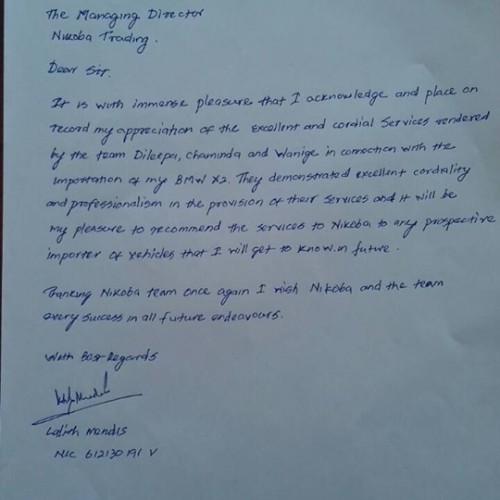 The Managing Director
Nikoba Trading.
Dear Sir.
It is with immense pleasure that I acknowledge and place on
record my appreciation of the excellent and cordial services rendered
by the team Dileepa, Chaminda and Wanige in connection with the
importation of my BMW X2. They demonstrated excellent cordiality
and professionalism in the provision of their services and it will be
my pleasure to recommend the services to Nikoba to any prospective
importer of vehicles that I will get to know in future.
Thanking Nikoba team once again I wish Nikoba and the team
every success in all future endeavours.
With Best Regards
Lalith Mendis
NIC 612130 191 V